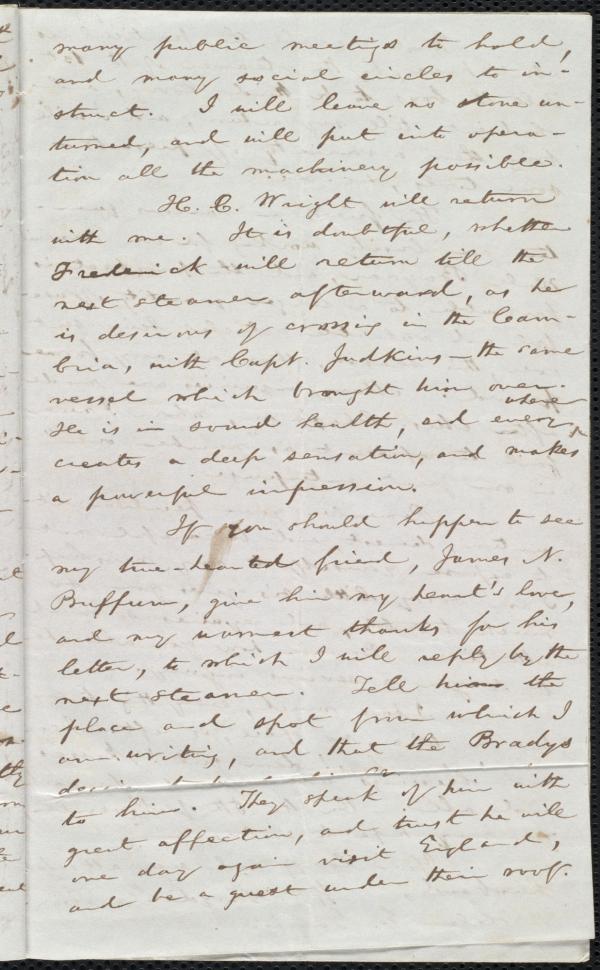 many public meetings to hold,
and many social circles to in-
struct. I will leave no stone un-
turned, and will put into opera-
tion all the machinery possible.
H. C. Wright will return
with me. It is doubtful, whether
Frederick will return till the
next steamer afterward, as he
is desirous of crossing in the Cam-
bria, with Capt. Judkins – the same
vessel which brought him over.
He is in sound health, and every where
creates a deep sensation, and makes
a powerful impression.
If you should happen to see
my true-hearted friend, James N.
Buffum, give him my heart's love,
and my warmest thanks for his
letter, to which I will reply by the
next steamer. Tell him the
place and spot from which I
am writing, and that the Bradys
to him. They speak of him with
great affection, and trust he will
one day again visit England,
and be a guest under their roof.